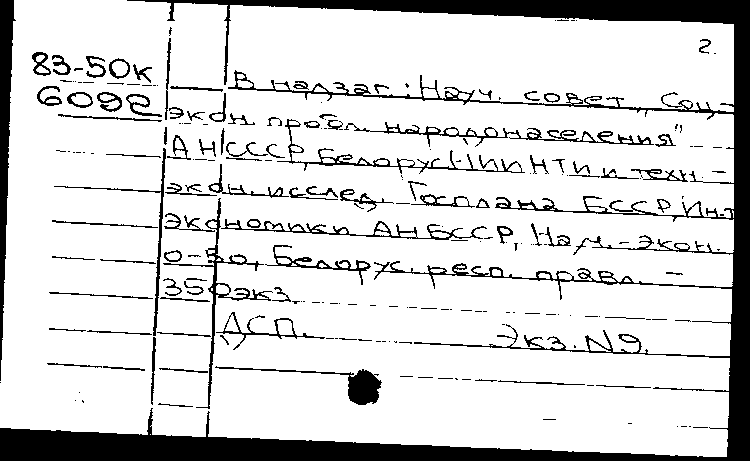 2.
83-50к
6092
В надзаг.: Науч. совет „Соц.-
экон. пробл. народонаселения"
АН СССР, Белорус. НИИНТИ и техн.-
экон. исслед. Госплана БССР, Ин-т
экономики АН БССР, Науч.-экон.
о-во, Белорус. респ. правл. -
350 экз.
ДСП. Экз. N9.